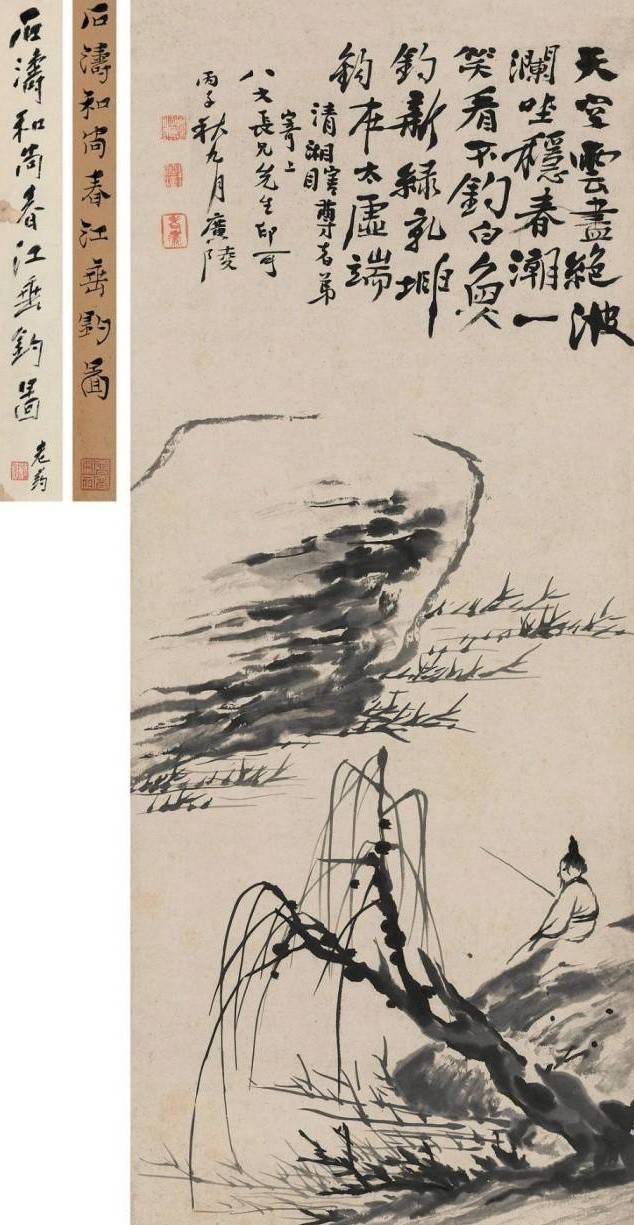 天空雲盡絕波
瀾坐穩春潮一
笑看不釣白魚
釣新綠乾坤
鈎在太虛端
清湘瞎尊者弟
寄上
八大長兄先生印可
丙子秋九月廣陵
石濤和尚春江垂釣圖
石濤和尚春江垂釣圖
老药